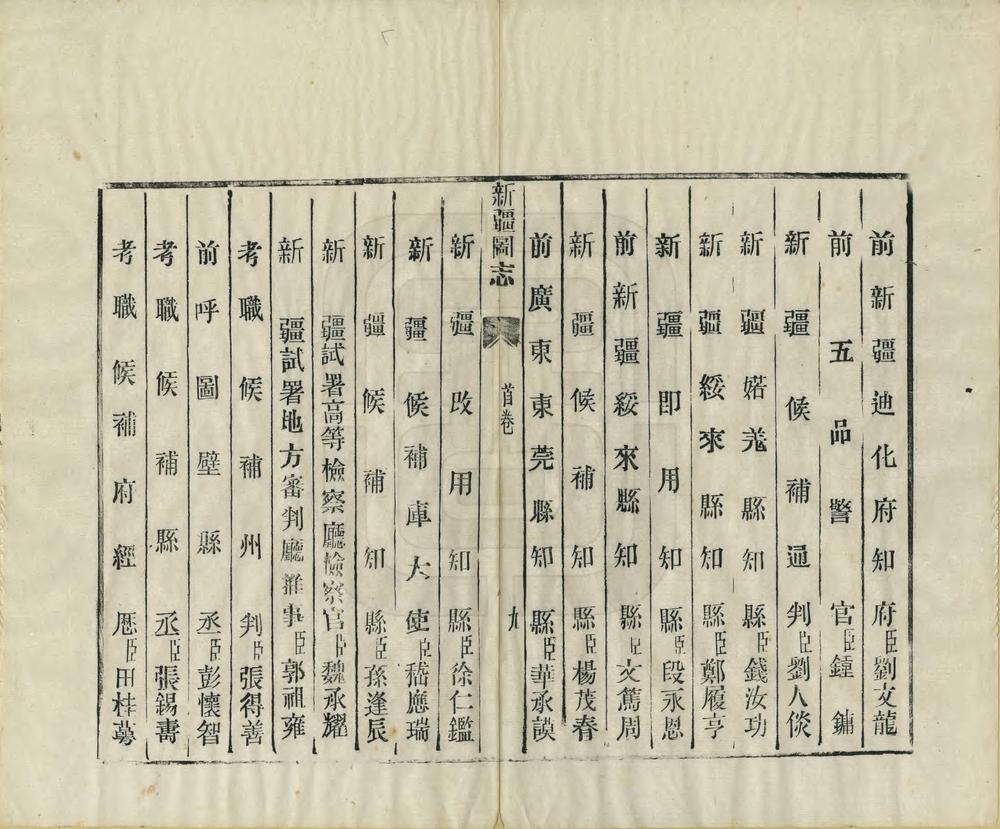 前新疆迪化府知府臣劉文龍
前五品警官臣鍾鏞
新疆候補通判臣劉人倓
新疆婼羌縣知縣臣錢汝功
新疆綏來縣知縣臣鄭履亨
新疆即用知縣臣段永恩
前新疆綏來縣知縣臣文篤周
新疆候補知縣臣楊茂春
前廣東東莞縣知縣臣華承謨
新疆圖志
首卷
九
新疆改用知縣臣徐仁鑑
新疆候補庫大使臣嵇應瑞
新疆候補知縣臣孫逢辰
新疆試署高等檢察廳檢察官臣魏承耀
新疆試署地方審判廳推事臣郭祖雍
考職候補州判臣張得善
前呼圖壁縣丞臣彭懷智
考職候補縣丞臣張錫壽
考職候補府經歷臣田桂蒡